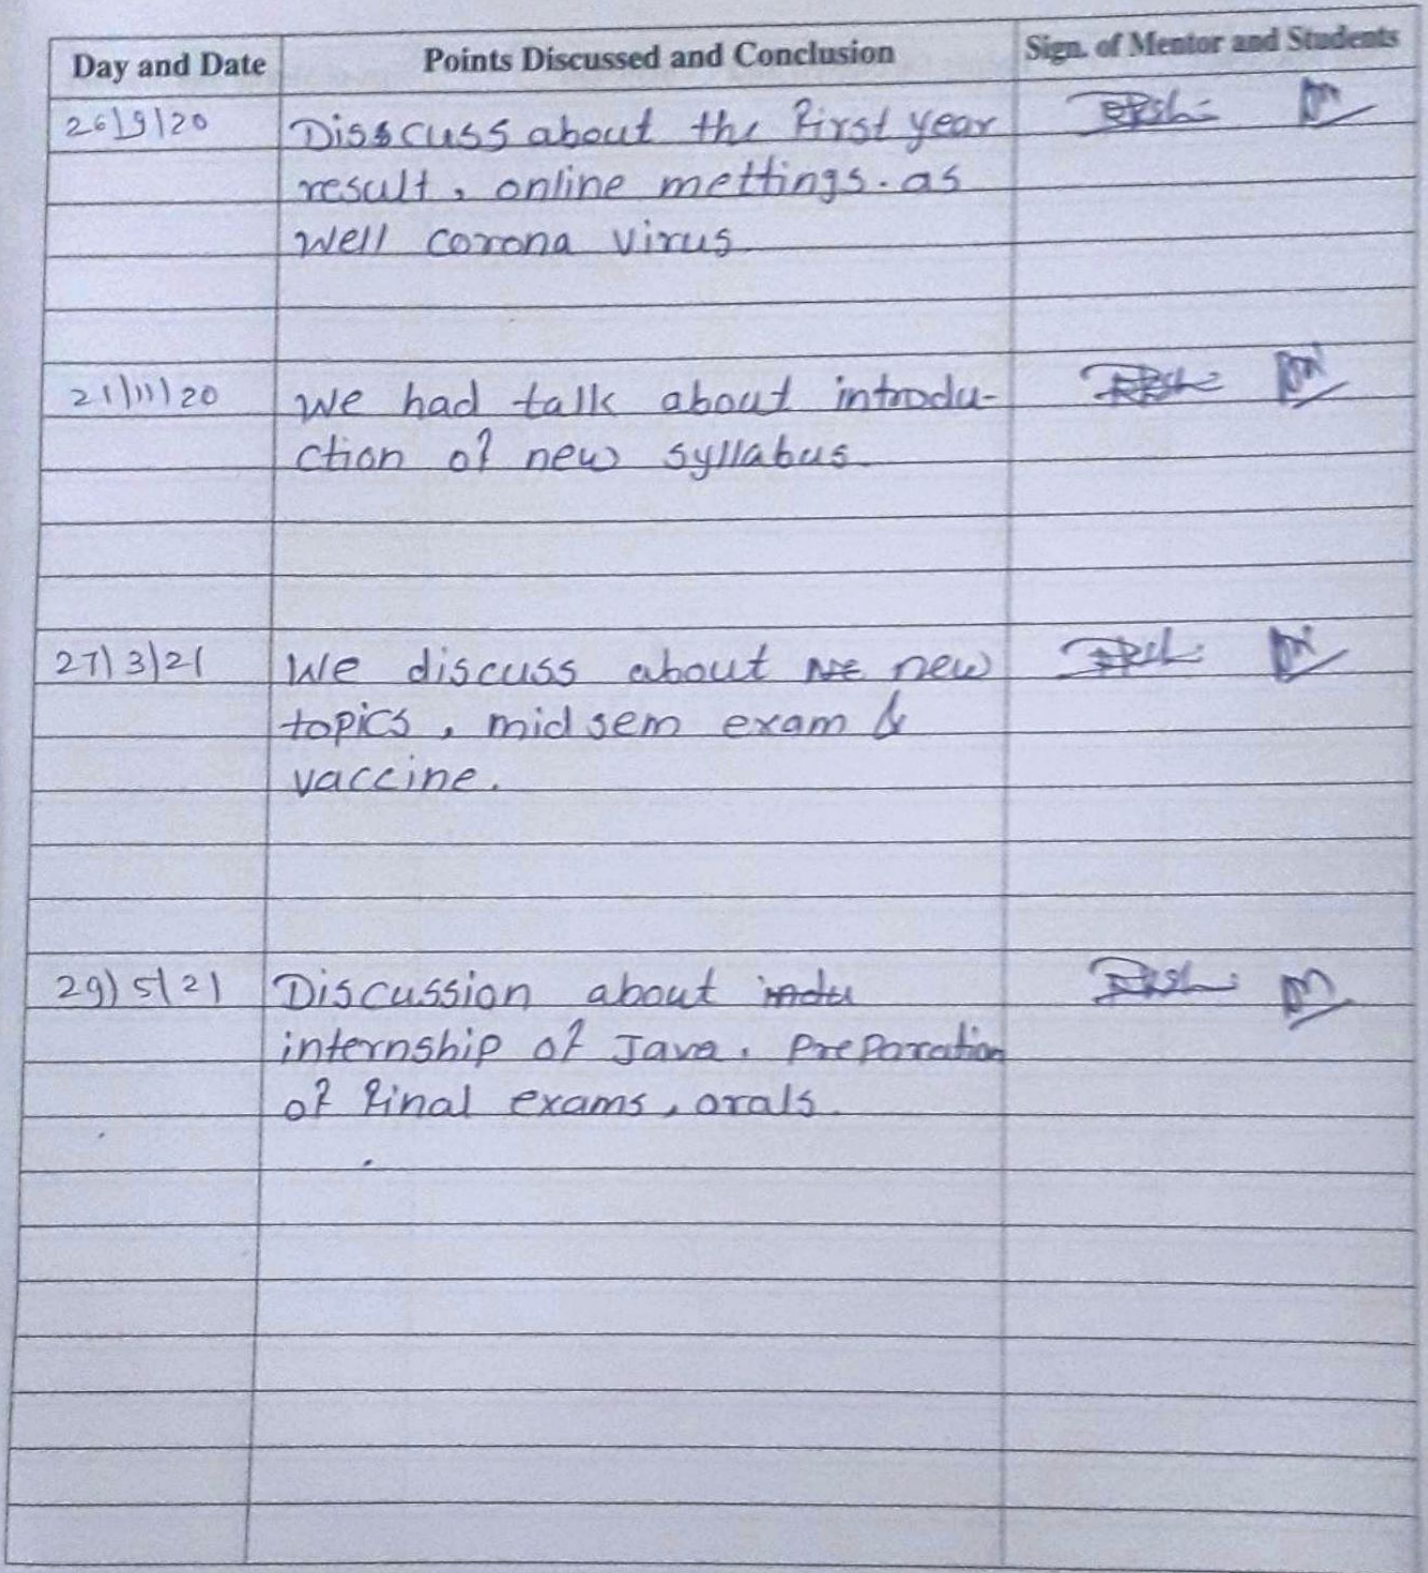 Day and Date Points Discussed and Conclusion Sign. of Mentor and Students
26/9/20 Disscuss about the first year
result, online mettings. as
well corona virus
21/11/20 We had talk about introdu-
ction of new syllabus
27/3/21 We discuss about new
topics, mid sem exam &
vaccine.
29/5/21 Discussion about
internship of Java. Preparation
of final exams, orals.